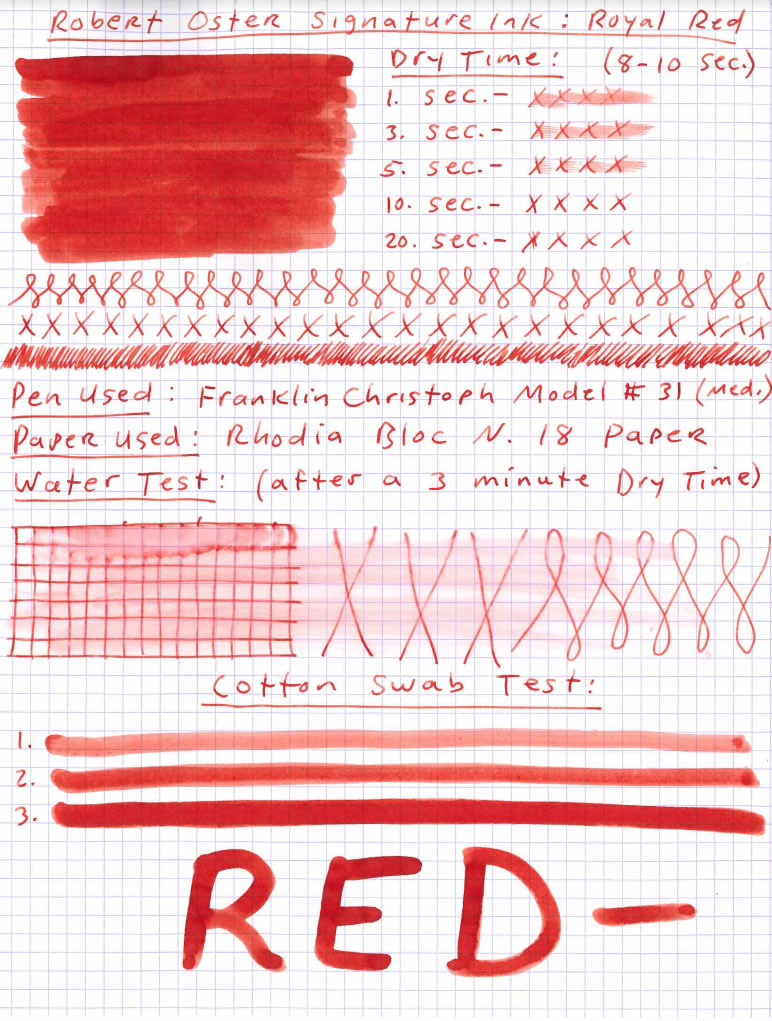 Robert Oster Signature Ink: Royal Red
Dry Time: (8-10 sec.)
1. sec.- x x x x
3. sec.- x x x x
5. sec.- x x x x
10. sec.- x x x x
20. sec.- x x x x
x x x x x x x x x x x x x x x x x x x x x x x x x
Pen Used: Franklin Christoph Model # 31 (med.)
Paper Used: Rhodia Bloc N. 18 Paper
Water Test: (after a 3 minute Dry Time)
Cotton Swab Test:
1.
2.
3.
RED-